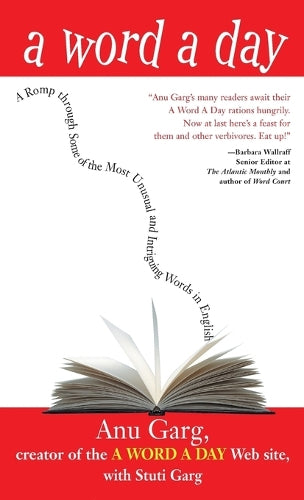 a word a day
A Romp through Some of the Most Unusual and Intriguing Words in English
“Anu Garg’s many readers await their
A Word A Day rations hungrily.
Now at last here’s a feast for
them and other verbivores. Eat up!”
—Barbara Wallraff
Senior Editor at
The Atlantic Monthly and
author of Word Court
Anu Garg,
creator of the A WORD A DAY Web site,
with Stuti Garg